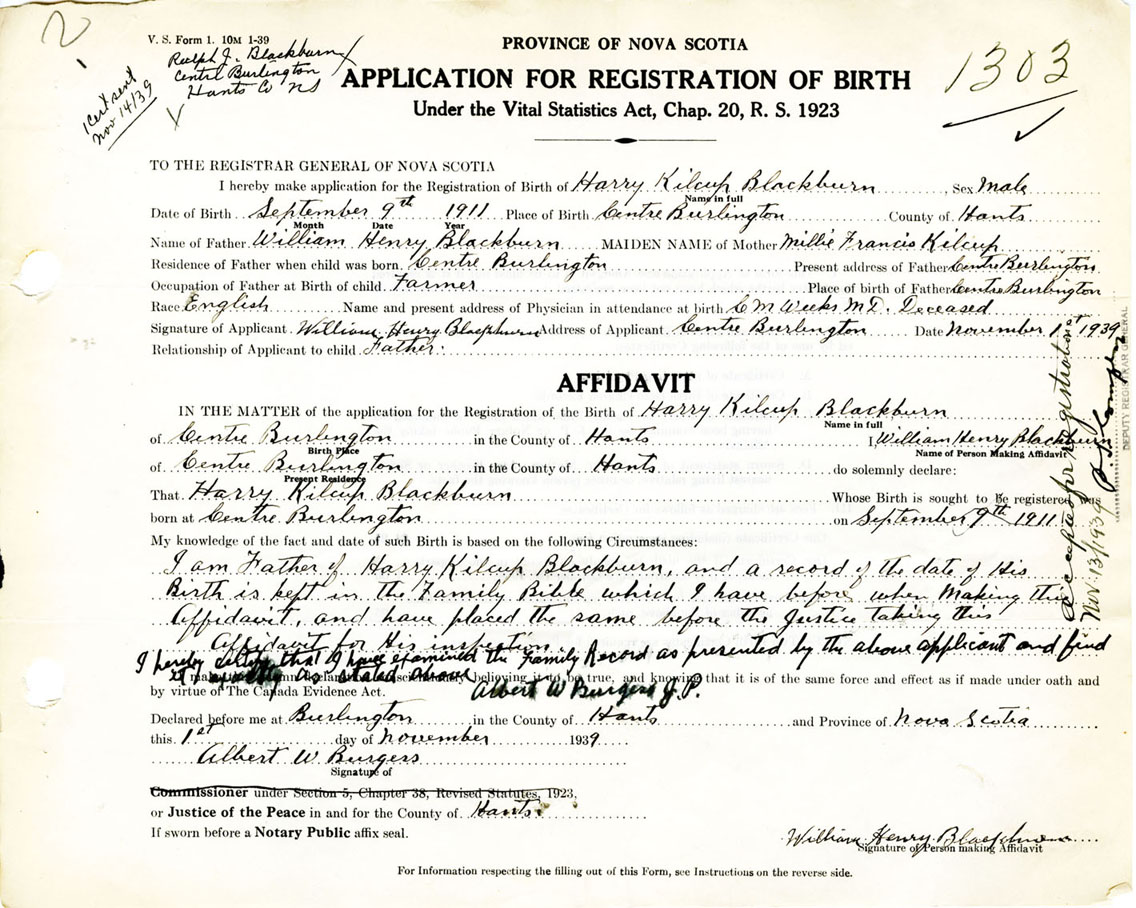 V. S. Form 1. 10M 1-39
Ralph J. Blackburn
Centre Burlington
Hants Co NS
1 Cert sent
Nov 14/39
PROVINCE OF NOVA SCOTIA
APPLICATION FOR REGISTRATION OF BIRTH
Under the Vital Statistics Act, Chap. 20, R. S. 1923
1303
TO THE REGISTRAR GENERAL OF NOVA SCOTIA
I hereby make application for the Registration of Birth of Harry Kilcup Blackburn Sex Male
Name in full
Date of Birth September 9th 1911 Place of Birth Centre Burlington County of Hants
Month Date Year
Name of Father William Henry Blackburn MAIDEN NAME of Mother Millie Francis Kilcup
Residence of Father when child was born Centre Burlington Present address of Father Centre Burlington
Occupation of Father at Birth of child Farmer Place of birth of Father Centre Burlington
Race English Name and present address of Physician in attendance at birth C M Weeks M D. Deceased
Signature of Applicant William Henry Blackburn Address of Applicant Centre Burlington Date November 1st 1939
Relationship of Applicant to child Father.
AFFIDAVIT
IN THE MATTER of the application for the Registration of the Birth of Harry Kilcup Blackburn
Name in full
of Centre Burlington in the County of Hants I, William Henry Blackburn
Birth Place Name of Person Making Affidavit
of Centre Burlington in the County of Hants do solemnly declare:
Present Residence
That Harry Kilcup Blackburn Whose Birth is sought to be registered was
born at Centre Burlington on September 9th 1911
My knowledge of the fact and date of such Birth is based on the following Circumstances:
I am Father of Harry Kilcup Blackburn, and a record of the date of His
Birth is kept in the Family Bible which I have before when Making this
Affidavit, and have placed the same before the Justice taking this
Affidavit for His inspection
I hereby certify that I have examined the Family Record as presented by the above applicant and find
it as stated above
believing it to be true, and knowing that it is of the same force and effect as if made under oath and
by virtue of The Canada Evidence Act.
Albert W Burgess J.P.
Declared before me at Burlington in the County of Hants and Province of Nova Scotia
this 1st day of November 1939
Albert W Burgess
Signature of
Commissioner under Section 5, Chapter 38, Revised Statutes, 1923,
or Justice of the Peace in and for the County of Hants
If sworn before a Notary Public affix seal.
William Henry Blackburn
Signature of Person making Affidavit
For Information respecting the filling out of this Form, see Instructions on the reverse side.
accepted for registration
Nov. 13/1939
DEPUTY REGISTRAR GENERAL